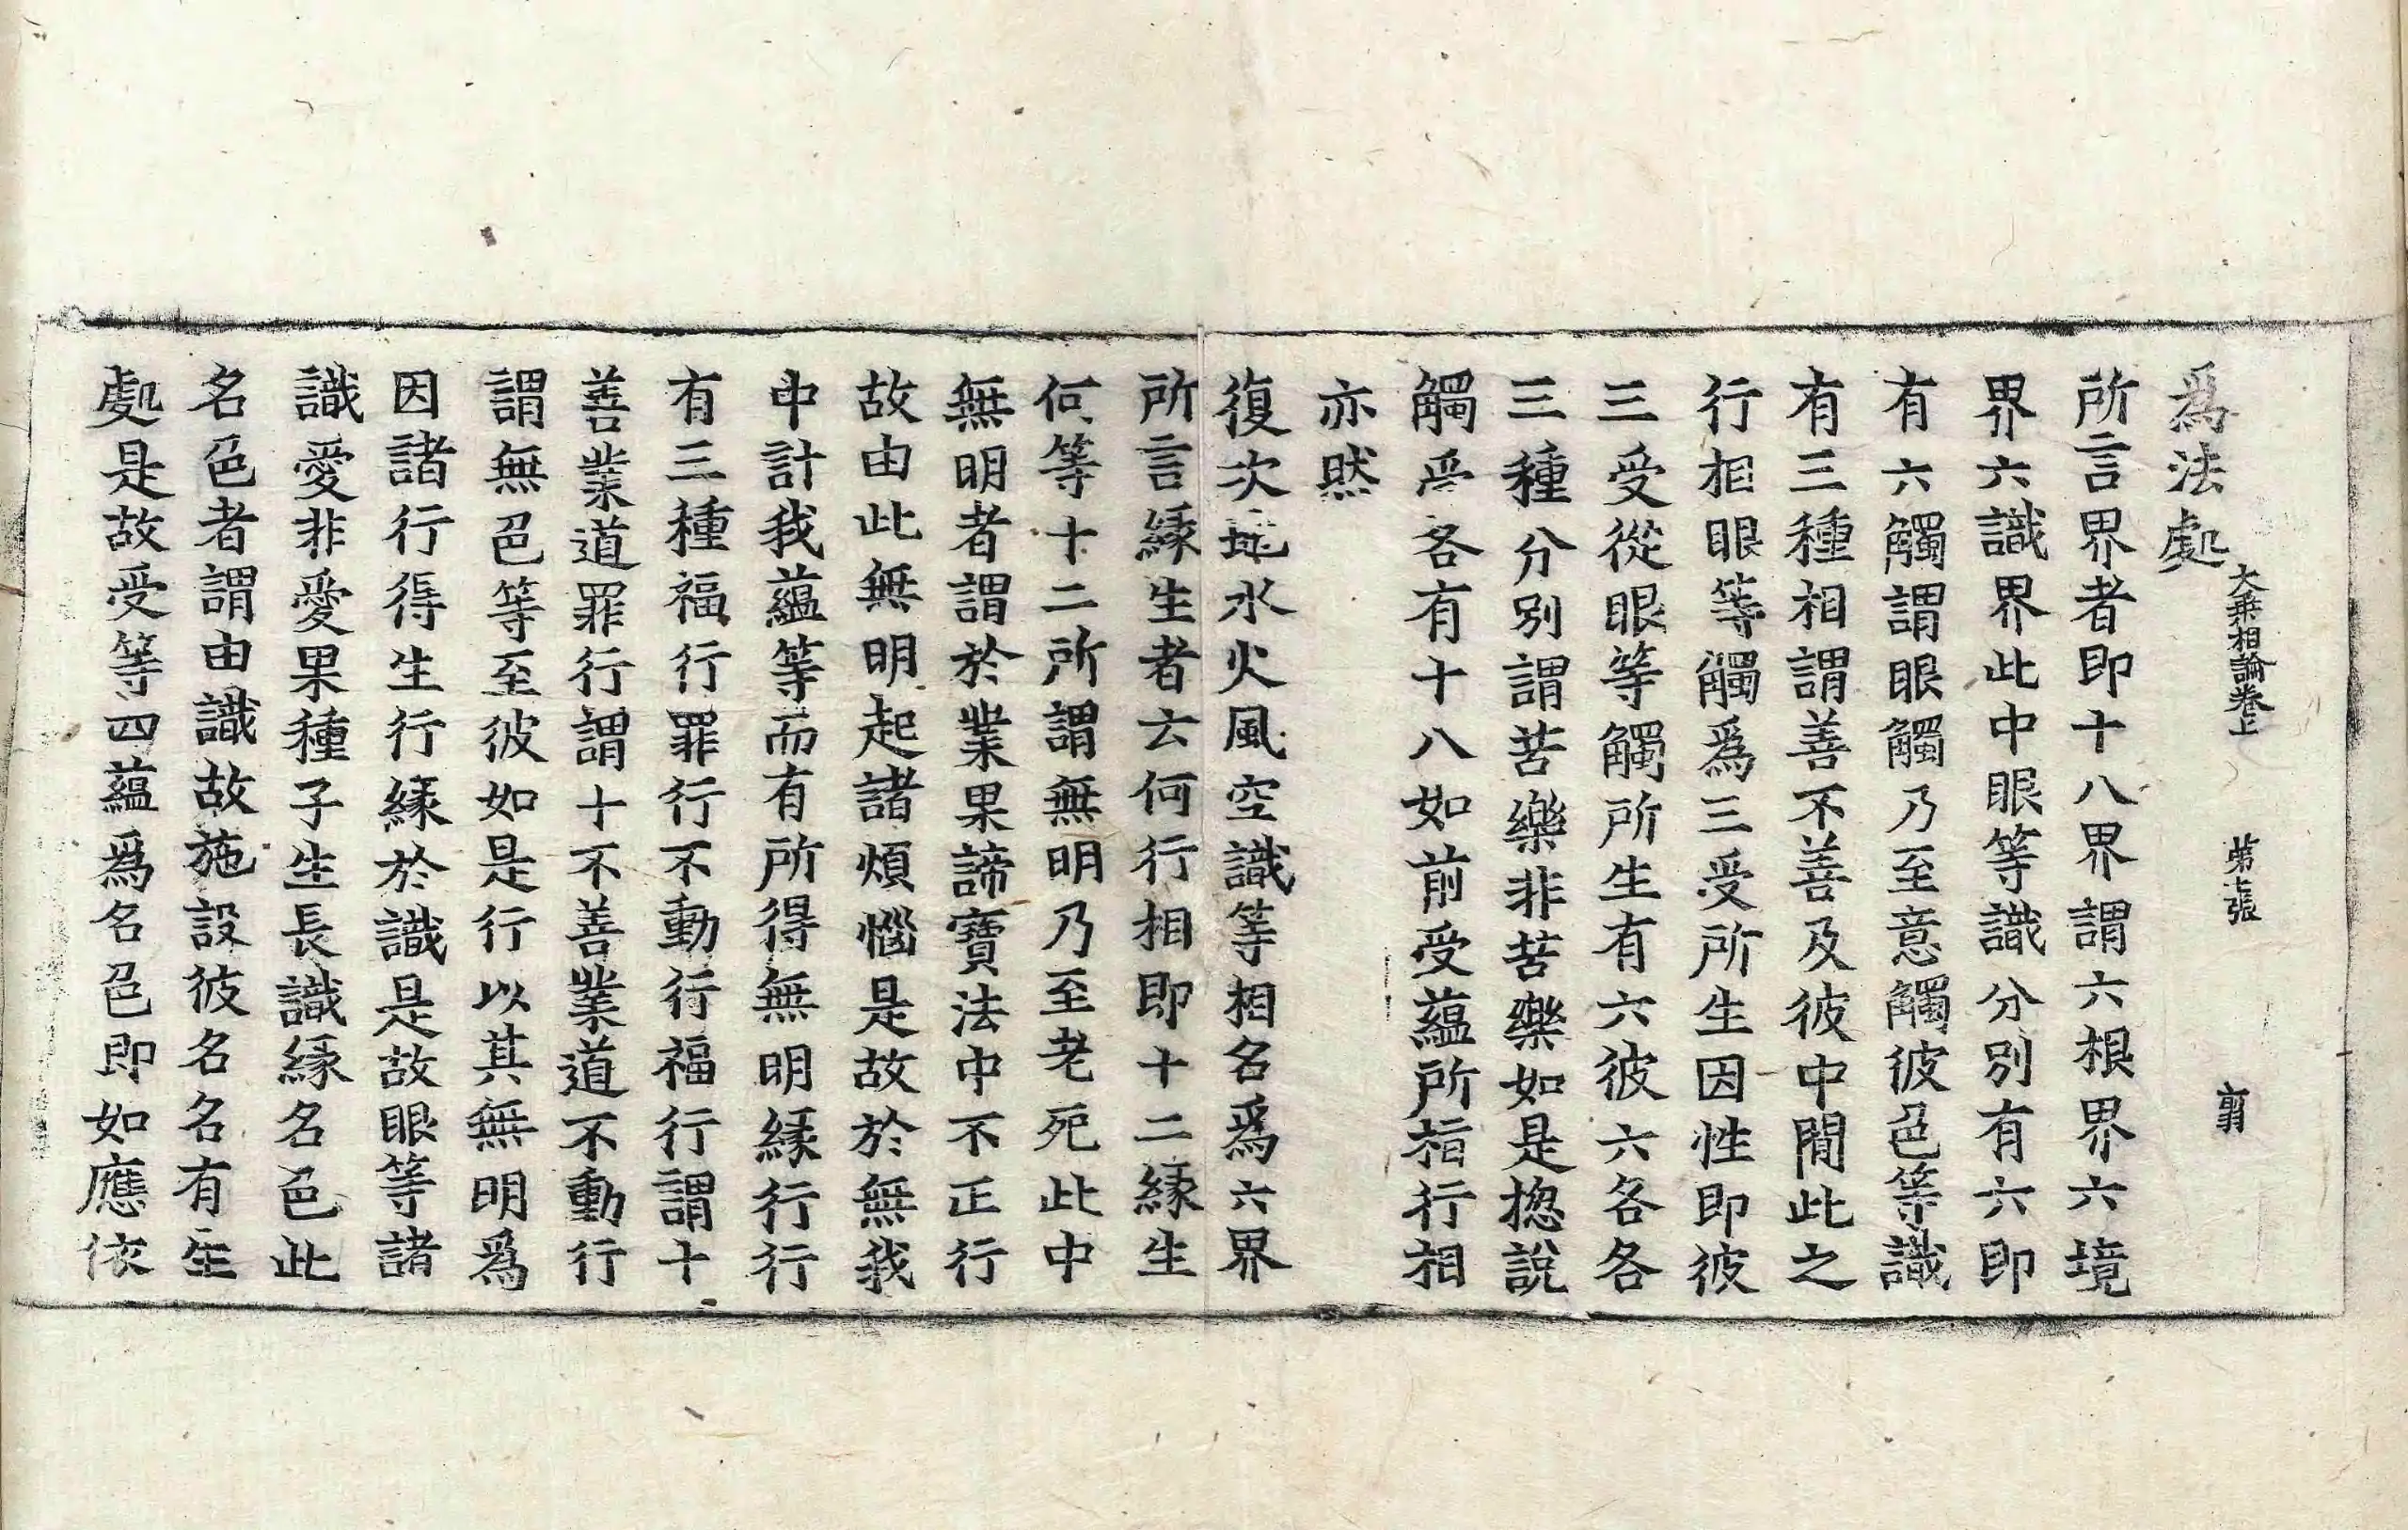 大乗相論卷上　第七張　翦
爲法處
所言界者即十八界謂六根界六境
界六識界此中眼等識分別有六即
有六觸謂眼觸乃至意觸彼色等識
有三種相謂善不善及彼中閒此之
行相眼等觸爲三受所生因性即彼
三受從眼等觸所生有六彼六各各
三種分別謂苦樂非苦樂如是揔說
觸受各有十八如前受蘊所指行相
亦然
復次地水火風空識等相名爲六界
所言縁生者云何行相即十二縁生
何等十二所謂無明乃至老死此中
無明者謂於業果諦寶法中不正行
故由此無明起諸煩惱是故於無我
中計我蘊等而有所得無明縁行行
有三種福行罪行不動行福行謂十
善業道罪行謂十不善業道不動行
謂無色等至彼如是行以其無明爲
因諸行得生行縁於識是故眼等諸
識愛非愛果種子生長識縁名色此
名色者謂由識故施設彼名名有生
處是故受等四蘊爲名色即如應依